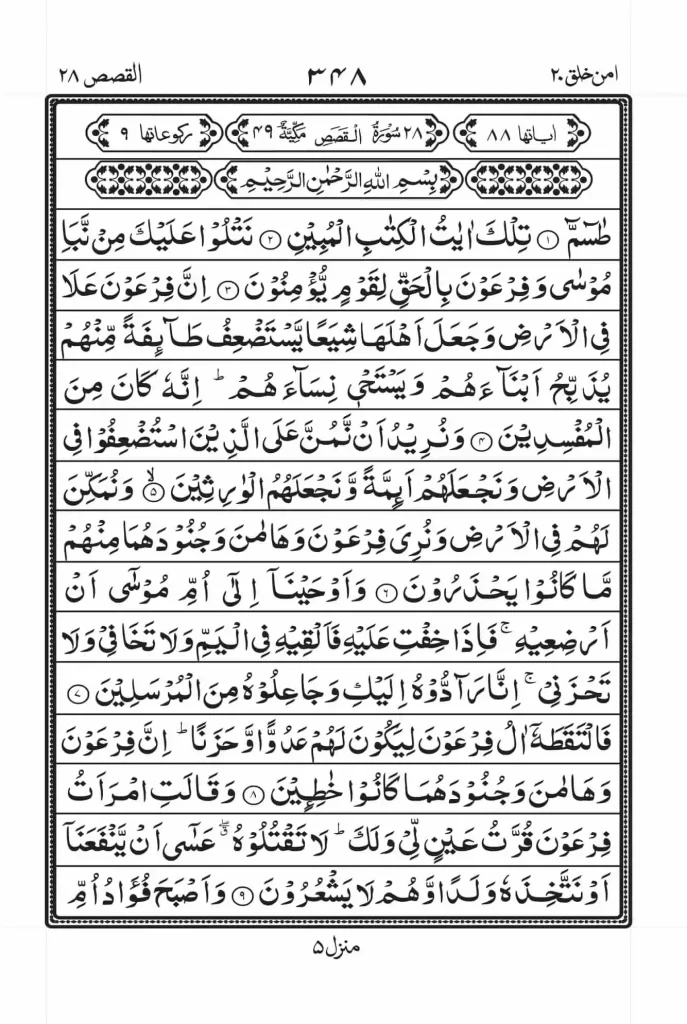 امن خلق ۲۰
۳۴۸
القصص ۲۸
اٰیاتها ۸۸
۲۸ سُوْرَةُ الْقَصَصِ مَكِّيَّةٌ ۴۹
ركوعاتها ۹
بِسْمِ اللّٰهِ الرَّحْمٰنِ الرَّحِيْمِ
طٰسٓمّٓ ۝۱ تِلْكَ اٰيٰتُ الْكِتٰبِ الْمُبِيْنِ ۝۲ نَتْلُوْا عَلَيْكَ مِنْ نَّبَاِ
مُوْسٰى وَفِرْعَوْنَ بِالْحَقِّ لِقَوْمٍ يُّؤْمِنُوْنَ ۝۳ اِنَّ فِرْعَوْنَ عَلَا
فِي الْاَرْضِ وَجَعَلَ اَهْلَهَا شِيَعًا يَّسْتَضْعِفُ طَآئِفَةً مِّنْهُمْ
يُذَبِّحُ اَبْنَآءَهُمْ وَيَسْتَحْيٖ نِسَآءَهُمْ ؕ اِنَّهٗ كَانَ مِنَ
الْمُفْسِدِيْنَ ۝۴ وَنُرِيْدُ اَنْ نَّمُنَّ عَلَى الَّذِيْنَ اسْتُضْعِفُوْا فِي
الْاَرْضِ وَنَجْعَلَهُمْ اَئِمَّةً وَّنَجْعَلَهُمُ الْوٰرِثِيْنَ ۙ۝۵ وَنُمَكِّنَ
لَهُمْ فِي الْاَرْضِ وَنُرِيَ فِرْعَوْنَ وَهَامٰنَ وَجُنُوْدَهُمَا مِنْهُمْ
مَّا كَانُوْا يَحْذَرُوْنَ ۝۶ وَاَوْحَيْنَآ اِلٰٓى اُمِّ مُوْسٰٓى اَنْ
اَرْضِعِيْهِ ۚ فَاِذَا خِفْتِ عَلَيْهِ فَاَلْقِيْهِ فِي الْيَمِّ وَلَا تَخَافِيْ وَلَا
تَحْزَنِيْ ۚ اِنَّا رَآدُّوْهُ اِلَيْكِ وَجَاعِلُوْهُ مِنَ الْمُرْسَلِيْنَ ۝۷
فَالْتَقَطَهٗٓ اٰلُ فِرْعَوْنَ لِيَكُوْنَ لَهُمْ عَدُوًّا وَّحَزَنًا ؕ اِنَّ فِرْعَوْنَ
وَهَامٰنَ وَجُنُوْدَهُمَا كَانُوْا خٰطِئِيْنَ ۝۸ وَقَالَتِ امْرَاَتُ
فِرْعَوْنَ قُرَّتُ عَيْنٍ لِّيْ وَلَكَ ؕ لَا تَقْتُلُوْهُ ۖۗ عَسٰٓى اَنْ يَّنْفَعَنَآ
اَوْ نَتَّخِذَهٗ وَلَدًا وَّهُمْ لَا يَشْعُرُوْنَ ۝۹ وَاَصْبَحَ فُؤَادُ اُمِّ
منزل ۵